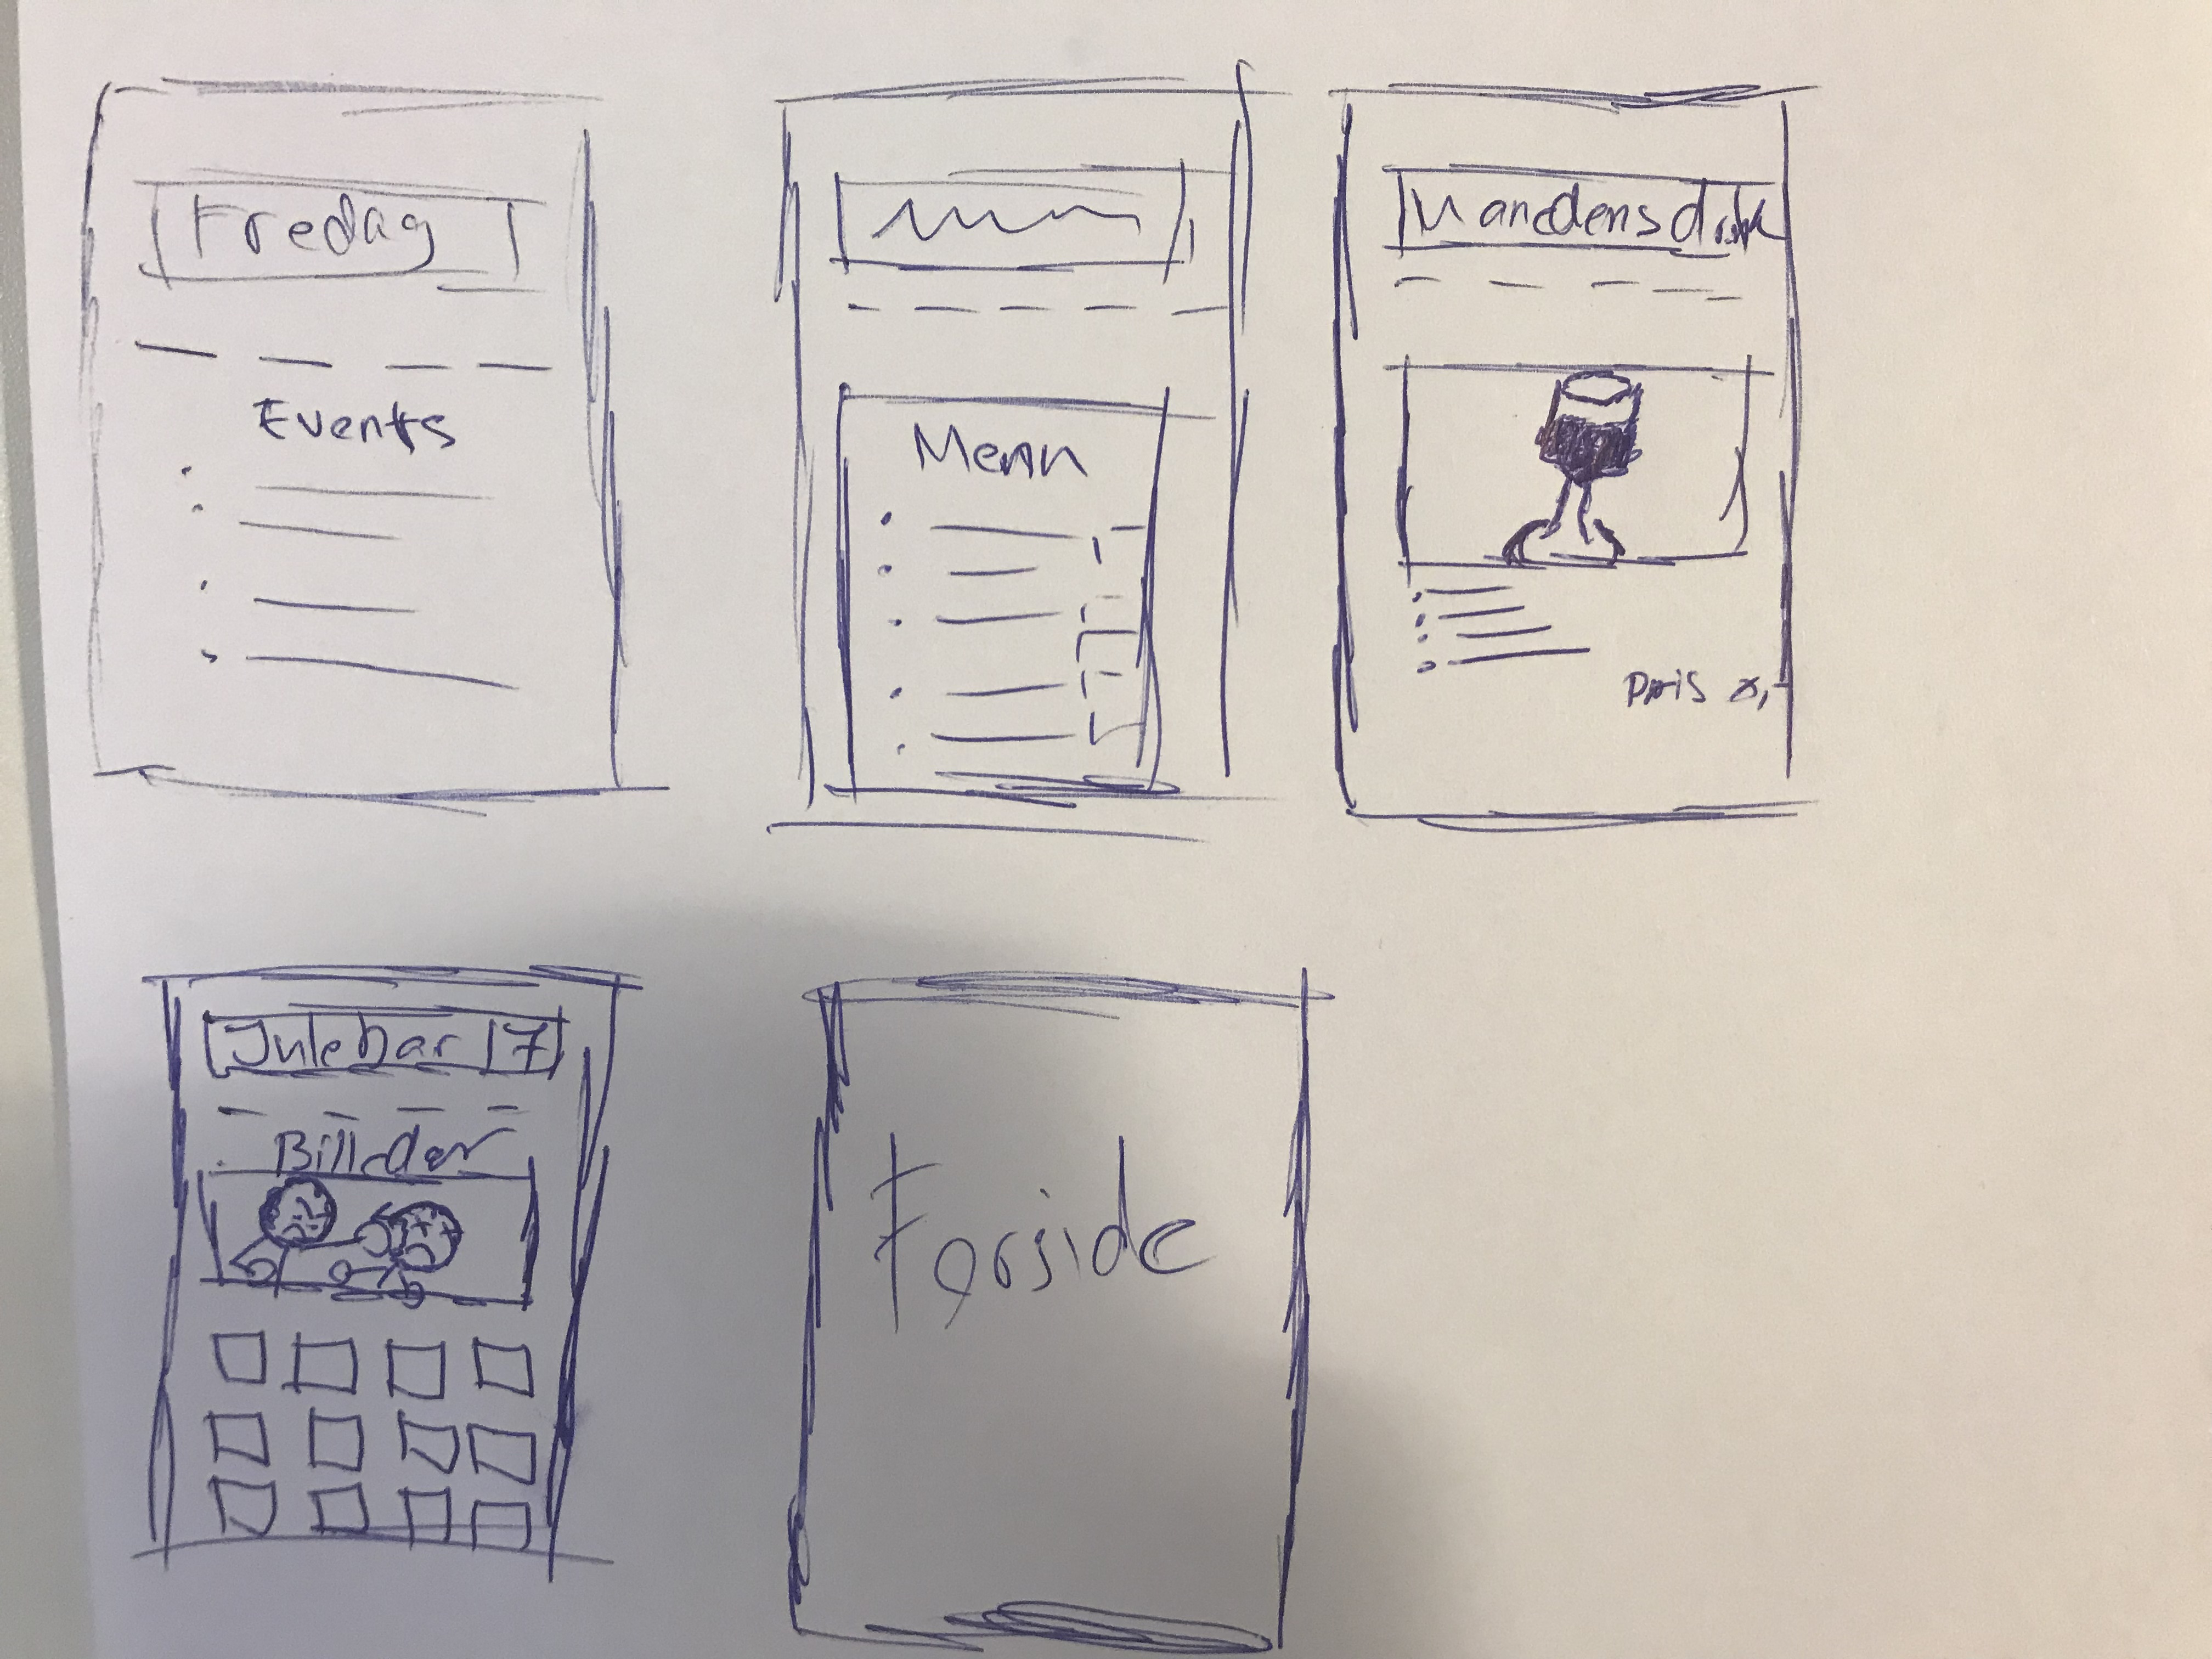 Fredag
Events
Menu
Manedens drink
Pris x,-
Julebar 17
Billeder
Forside